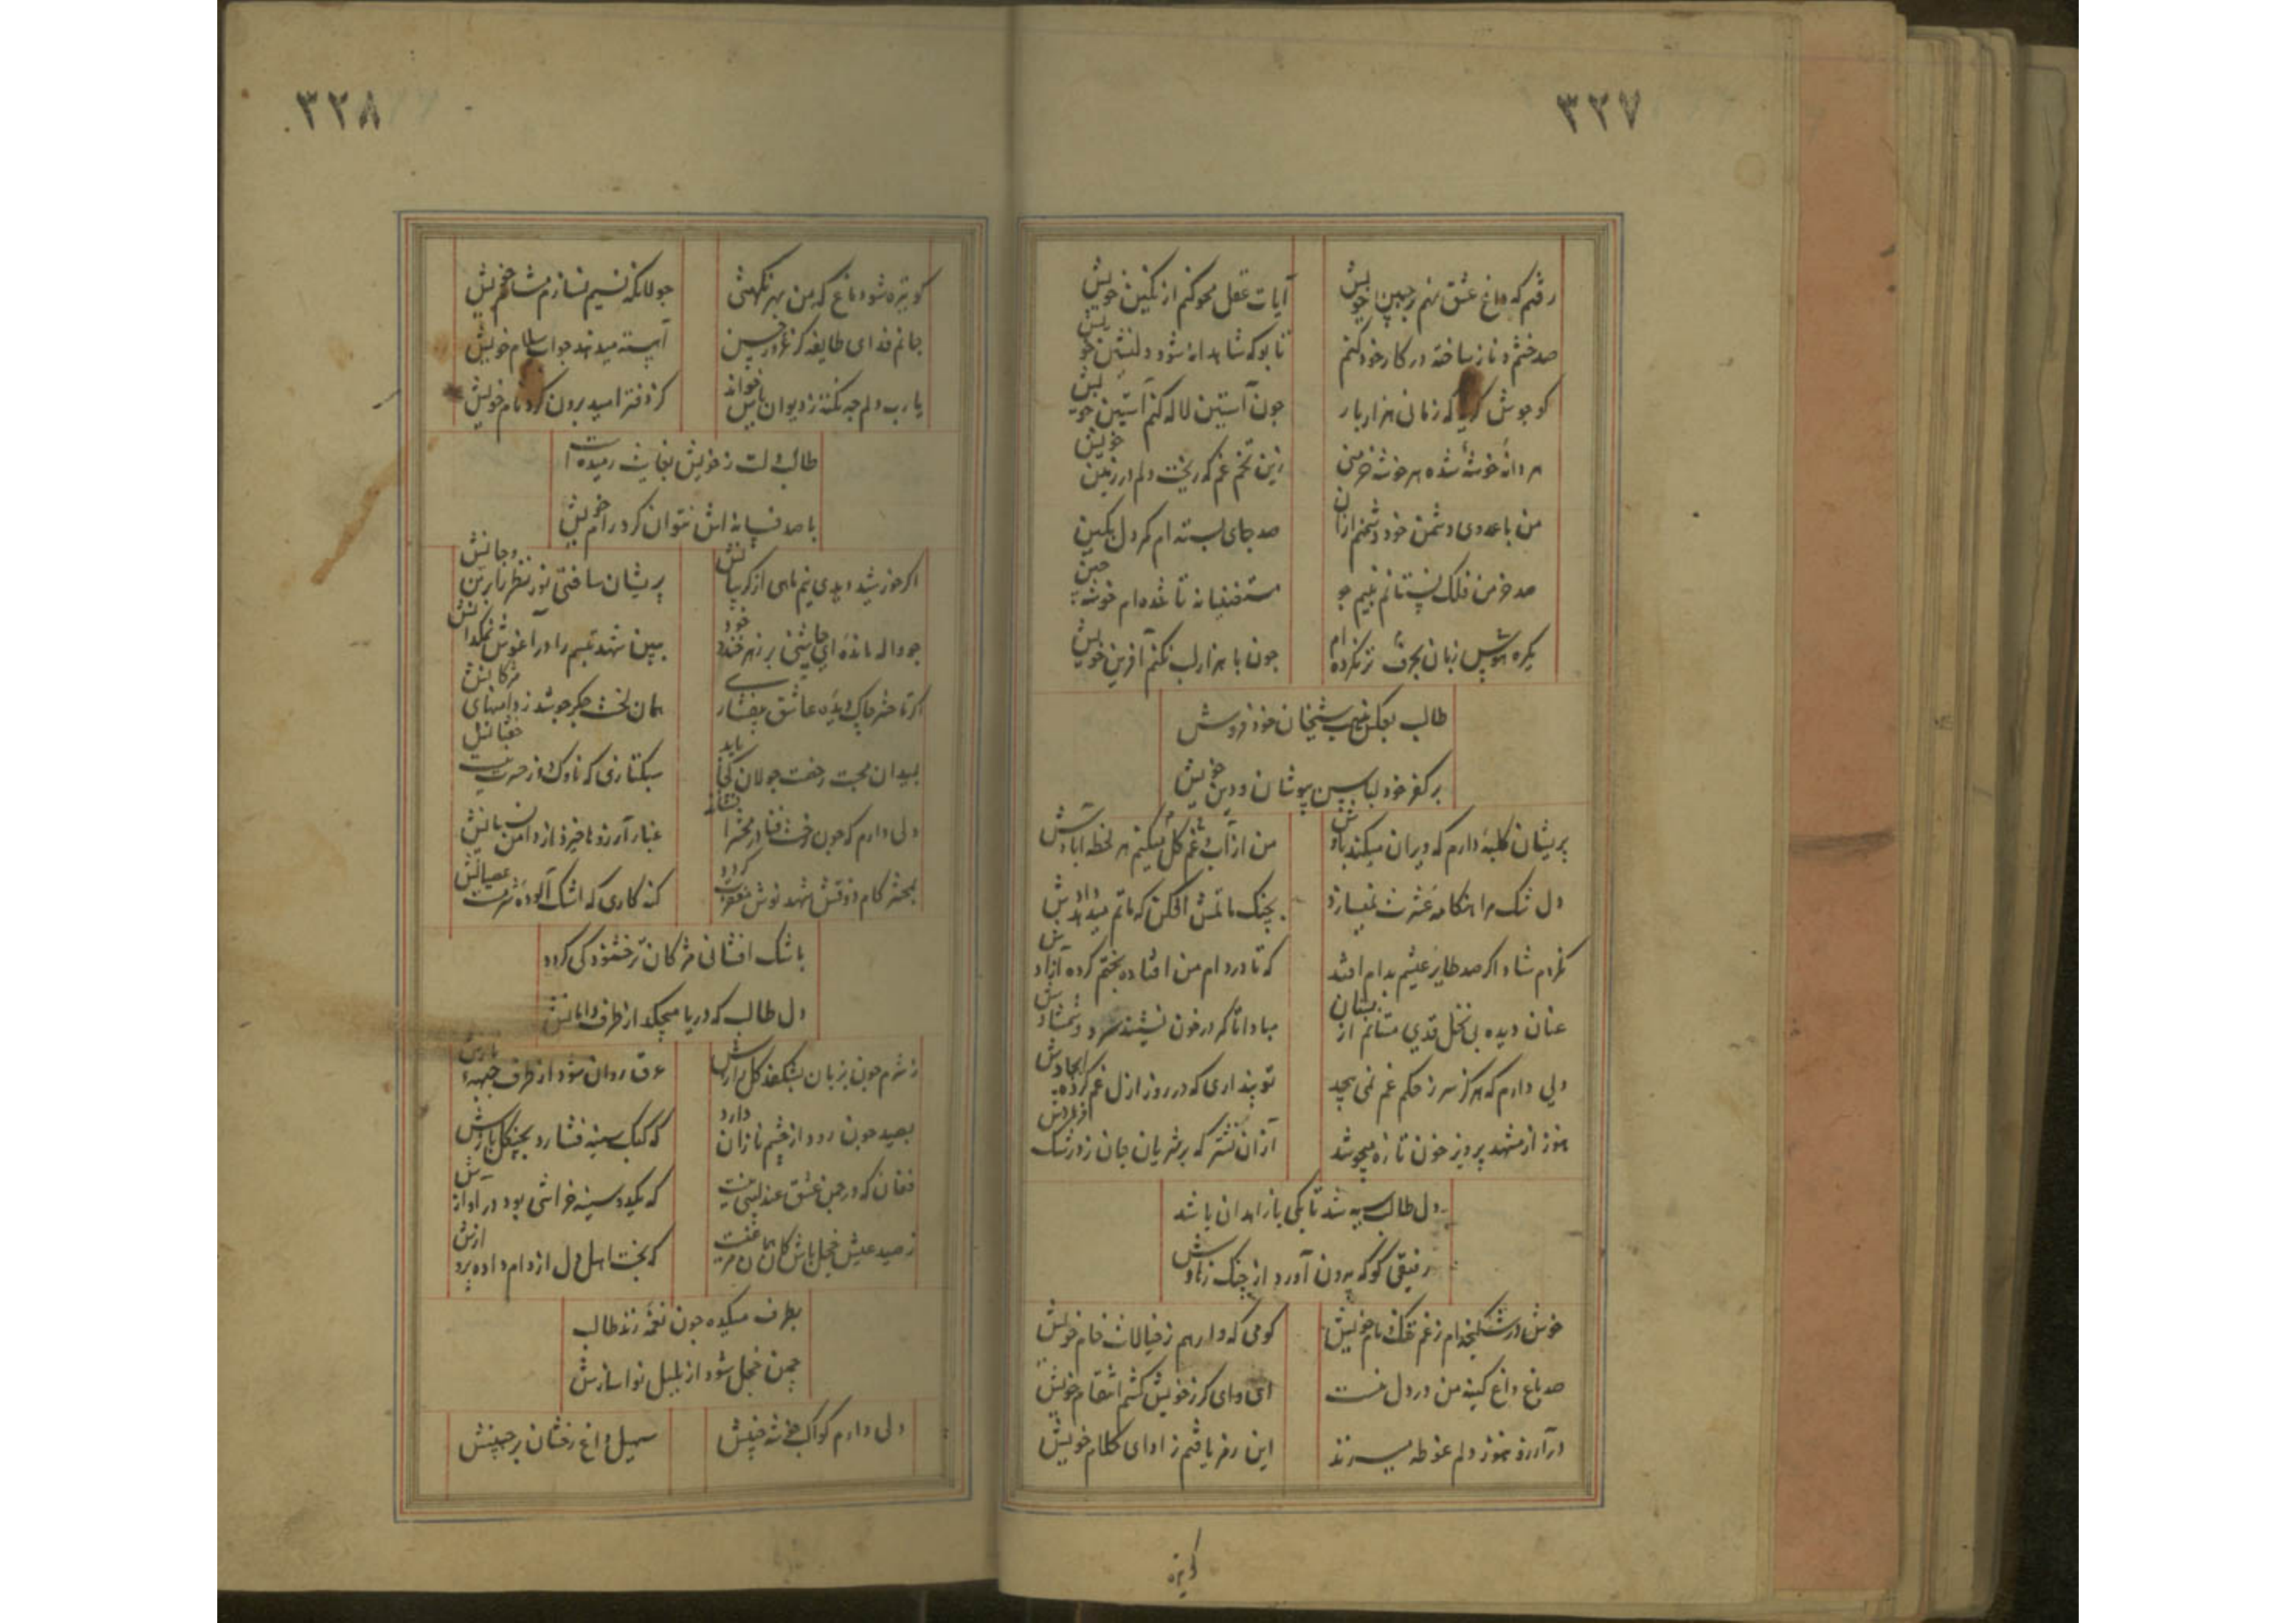 ۳۲۷
رفتم که داغ عشق نهم بر جبین خویش
آیات عقل محو کنم از نگین خویش
صد خشم و ناز ساخته در کار خود کنم
تا بو که شاهدانه شود دلنشین خویش
کو جوش گریه که زمان هزار بار
چون آستین لاله کنم آستین خویش
هر دانهٔ خوشهٔ شده هر خوشه خرمنی
زین تخم غم که ریخت دلم در زمین خویش
من با عدوی دشمن خود دشمنم ازان
صد جای بسته ام کمر دل بکین
صد خرمن فلک نستانم به نیم جو
مستغنیانه تا شده ام خوشه چین
یکره بنوش زبان بحرف تر نکرده ام
چون با هزار لب نکنم آفرین خویش
طالب شیخان خود فروش
بر کفر خود لباس بپوشان و دین خویش
پریشان کلبهٔ دارم که ویران میکند بادش
من از آب غم گل میکنم هر لحظه آبادش
دل تنگ مرا هنگامه عشرت نمیسازد
بچنگ ماتمش افکن که ماتم میدهد دادش
نگردم شاد اگر صد طایر عیشم بدام افتد
که تا در دام من افتاده بختم کرده آزادش
عنان دیده بی نخل قدی مستانم از بستان
مبادا تا کمر در خون نشیند سرو و شمشادش
دلی دارم که هرگز سر ز حکم غم نمی پیچد
تو پنداری که در روز ازل غم کرده ایجادش
هنوز از مشهد پرویز خون تازه میجوشد
ازان نشتر که بر شریان جان زد رشک فرهادش
دل طالب سیه شد تا بکی با زاهدان باشد
رفیقی کو که بیرون آورد از چنگ زهادش
خوش در شکنجه ام ز غم ننگ نام خویش
کو می که وارهم ز خیالات خام خویش
صد باغ داغ کینه من در دل منست
ای وای گر ز خویش کشم انتقام خویش
در آرزو هنوز دلم غوطه میزند
این رمز یافتم ز ادای کلام خویش
کو تیره
۳۲۸
کو تیره شو دماغ که من بهر نکهتی
جولانگه نسیم نسازم مشام خویش
جانم فدای طایفه کز غرور حسن
آهسته میدهند جواب سلام خویش
یارب دلم چه نکته ز دیوان یاس خواند
کز دفتر امید برون کرد نام خویش
طالب دلت ز خویش بغایت رمیده است
با صد فسانه اش نتوان کرد رام خویش
اگر خورشید دیدی نیم ماهی از گریبانش
پریشان ساختی نور نظر را بر تن و جانش
چو واله مانده ای چاشنی بر زهرخند خود
ببین شهد تبسم را در آغوش نمکدانش
اگر تا حشر چاک دیده عاشق بیفشاری
همان لخت جگر جوشد ز دامنهای مژگانش
بمیدان محبت رخصت جولان کجا یابد
سبکتازی که ناوک خیز حسرت نیست خفتانش
دلی دارم که چون رخت فنا در محشر افشاند
غبار آرزوها خیزد از دامن نسیانش
بمحشر کام ذوقش شهد نوش مغفرت گردد
گنه کاری که اشک آلودهٔ شرمست عصیانش
باشک افشانی مژگان تر خشنود کی گردد
دل طالب که دریا میچکد از طرف دامانش
ز شرم چون بزبان بشکفد گل رازش
عرق روان شود از طرف جبههٔ نازش
بصید چون رود از خشم نازان دارد
که کبک سینه فشارد بچنگل بازش
فغان که در چمن عشق عندلیبی نیست
که یکدو سینه خراشی بود در آوازش
ز صید عیش خجل باش کان همان مرغیست
که بخت اهل دل از دام داده پروازش
بطرف میکده چون نغمه زند طالب
چمن خجل شود از بلبل نواسازش
دلی دارم کواکب خوشه چینش
سهیل داغ رخشان بر جبینش